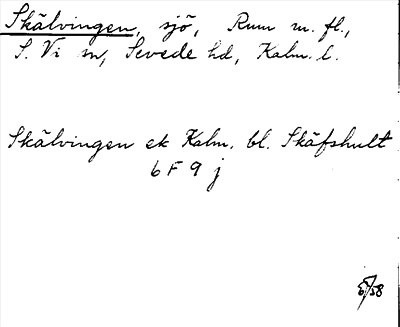 Skälvingen, sjö, Rum m. fl.,
S. Vi sn, Sevede hd, Kalm. l.
Skälvingen ek Kalm. bl. Skäfshult
6 F 9 j
5/58